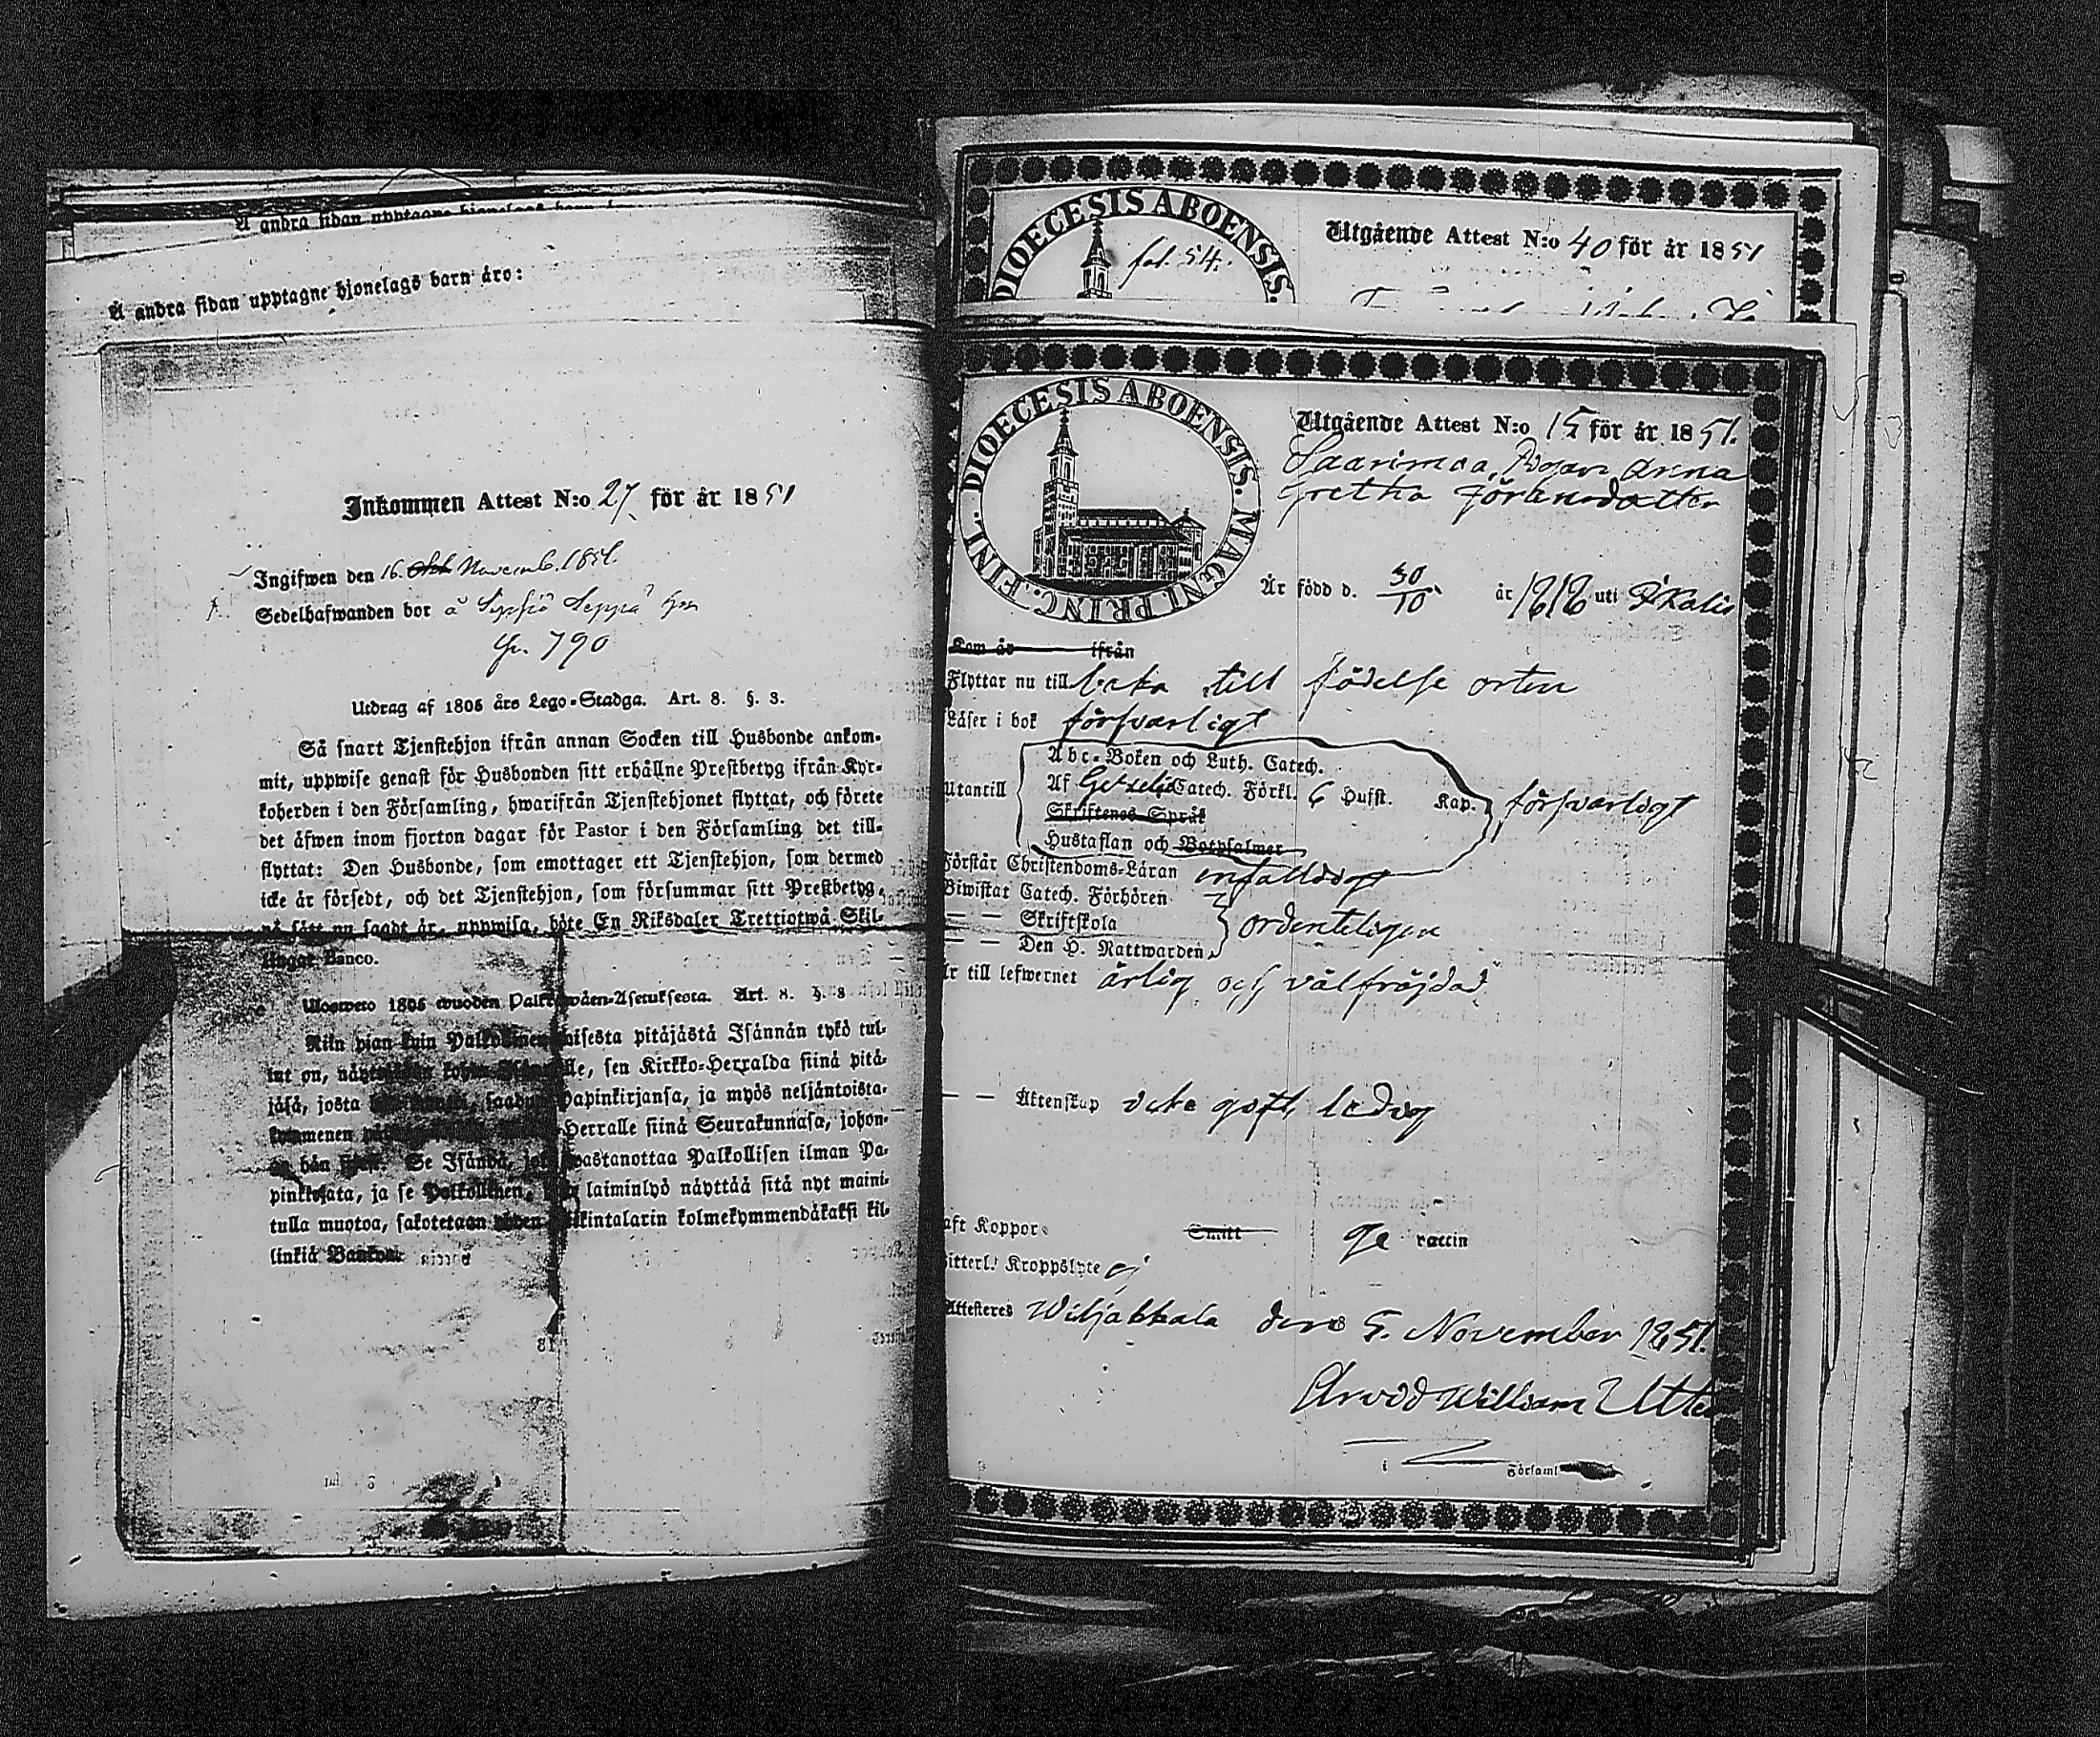 Å andra sidan upptagne hjonelags barn äro:
Inkommen Attest N:o 27 för år 1851
Ingifwen den 16. Novemb. 1851.
Sedelhafwanden bor å
790
Utdrag af 1805 års Lego-Stadga. Art. 8. §. 3.
Så snart Tjenstehjon ifrån annan Socken till Husbonde ankom-
mit, uppwise genast för Husbonden sitt erhållne Prestbetyg ifrån Kyr-
koherden i den Församling, hwarifrån Tjenstehjonet flyttat, och förete
det äfwen inom fjorton dagar för Pastor i den Församling det till-
flyttat: Den Husbonde, som emottager ett Tjenstehjon, som dermed
icke är försedt, och det Tjenstehjon, som försummar sitt Prestbetyg,
på sätt nu sagdt är, uppwisa, böte En Riksdaler Trettiotwå Skil-
lingar Banco.
Ulosweto 1805 wuoden Art. 8. §. 3
Niin pian kuin pitäjästä Isännän tykö tul-
lut on, sen Kirkko-Herralda siinä pitä-
jäsä, josta papinkirjansa, ja myös neljäntoista-
kymmenen Herralle siinä Seurakunnasa, johon-
on hän Se Isändä, wastanottaa Palkollisen ilman Pa-
pinkirjata, ja se Palkollinen, laiminlyö näyttää sitä nyt maini-
tulla muotoa, sakotetaan kolmekymmendäkaksi kil-
linkiä Bankoa
DIOECESIS ABOENSIS.
fol. 54.
Utgående Attest N:o 40 för år 1851
DIOECESIS ABOENSIS. MAGNI PRINC. FINL.
Utgående Attest N:o 15 för år 1851.
Saarimaa, Pigan Anna
Gretha Göransdotter
Är född d. 30/10 år 1818 uti Ikalis
Kom år ifrån
Flyttar nu till baka till födelse orten
Läser i bok försvarligt
Abc-Boken och Luth. Catech.
Utantill Af Gezelii Catech. Förkl. 6 Hufst. Kap. försvarligt
Skriftenes Språk
Hustaflan och Botpsalmer
Förstår Christendoms-Läran enfaldigt
Biwistat Catech. Förhören
— — Skriftskola ordenteligen
— — Den H. Nattwarden
är till lefwernet ärlig och välfräjdad
— — Äktenskap icke gift, ledig
aft Koppor Smitt ge vaccin
itterl. Kroppslyte ej
Attesteres Wiljakkala den 5. November 1851.
Arvid William
i Församl